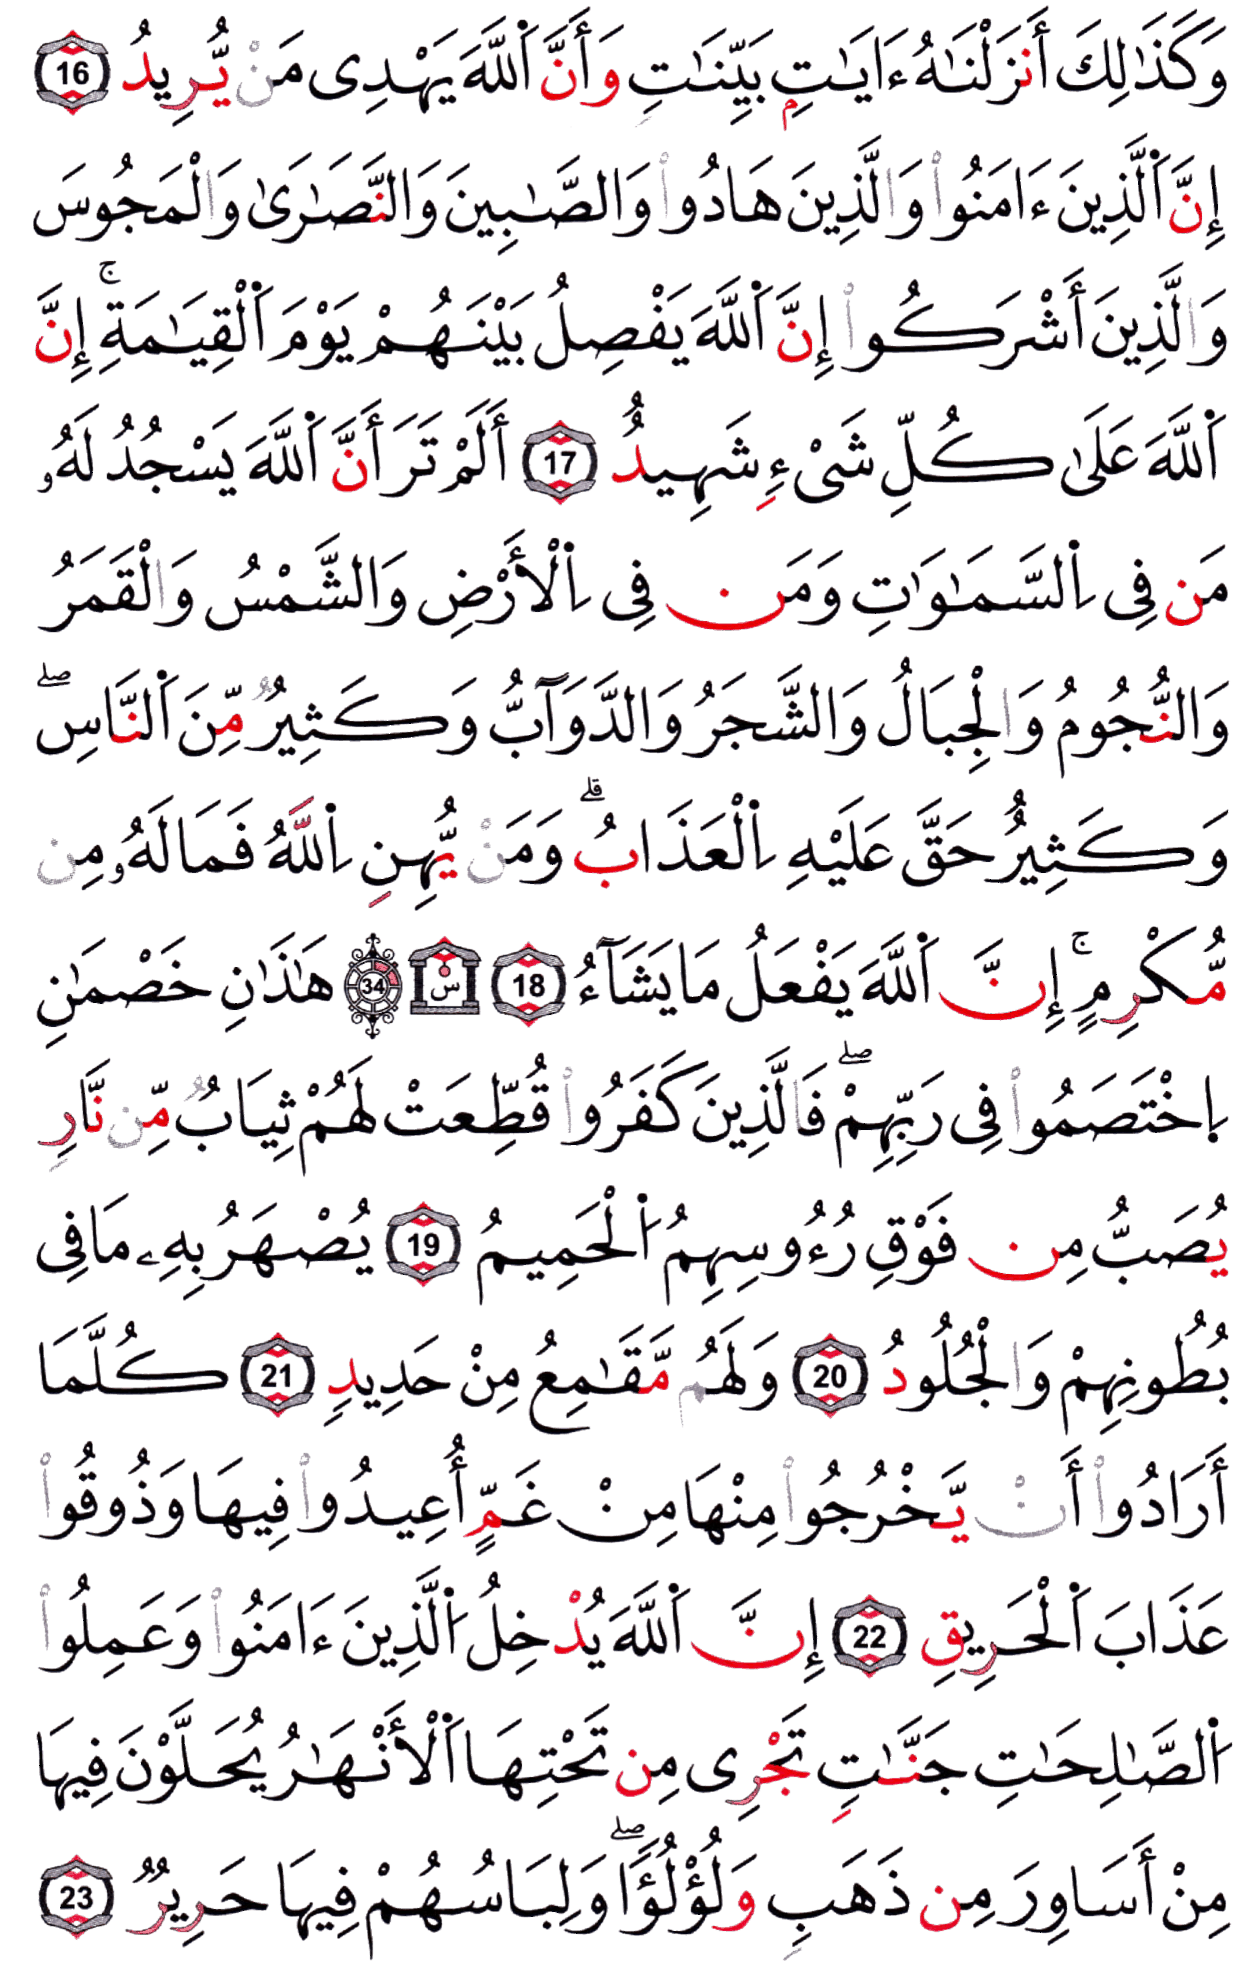 وَكَذَٰلِكَ أَنزَلْنَٰهُ ءَايَٰتِۭ بَيِّنَٰتٖ وَأَنَّ اَ۬للَّهَ يَهْدِى مَنْ يُّرِيدُ 16
إِنَّ اَ۬لَّذِينَ ءَامَنُواْ وَالَّذِينَ هَادُواْ وَالصَّٰبِـِٔينَ وَالنَّصَٰرَىٰ وَالْمَجُوسَ
وَالَّذِينَ أَشْرَكُواْ إِنَّ اَ۬للَّهَ يَفْصِلُ بَيْنَهُمْ يَوْمَ اَ۬لْقِيَٰمَةِۚ إِنَّ
اَ۬للَّهَ عَلَىٰ كُلِّ شَىْءٖ شَهِيدٌ 17 أَلَمْ تَرَ أَنَّ اَ۬للَّهَ يَسْجُدُ لَهُۥ
مَن فِى اِ۬لسَّمَٰوَٰتِ وَمَن فِى اِ۬لْأَرْضِ وَالشَّمْسُ وَالْقَمَرُ
وَالنُّجُومُ وَالْجِبَالُ وَالشَّجَرُ وَالدَّوَآبُّ وَكَثِيرٞ مِّنَ اَ۬لنَّاسِۖ
وَكَثِيرٌ حَقَّ عَلَيْهِ اِ۬لْعَذَابُۗ وَمَنْ يُّهِنِ اِ۬للَّهُ فَمَا لَهُۥ مِن
مُّكْرِمٍۚ إِنَّ اَ۬للَّهَ يَفْعَلُ مَا يَشَآءُ 18 س 34 هَٰذَٰنِ خَصْمَٰنِ
اِ۪خْتَصَمُواْ فِى رَبِّهِمْۖ فَالَّذِينَ كَفَرُواْ قُطِّعَتْ لَهُمْ ثِيَابٞ مِّن نَّارٖ
يُصَبُّ مِن فَوْقِ رُءُوسِهِمُ اَ۬لْحَمِيمُ 19 يُصْهَرُ بِهِۦ مَا فِى
بُطُونِهِمْ وَالْجُلُودُ 20 وَلَهُم مَّقَٰمِعُ مِنْ حَدِيدٍ 21 كُلَّمَا
أَرَادُواْ أَنْ يَّخْرُجُواْ مِنْهَا مِنْ غَمٍّ أُعِيدُواْ فِيهَا وَذُوقُواْ
عَذَابَ اَ۬لْحَرِيقِ 22 إِنَّ اَ۬للَّهَ يُدْخِلُ اُ۬لَّذِينَ ءَامَنُواْ وَعَمِلُواْ
اُ۬لصَّٰلِحَٰتِ جَنَّٰتٖ تَجْرِى مِن تَحْتِهَا اَ۬لْأَنْهَٰرُ يُحَلَّوْنَ فِيهَا
مِنْ أَسَاوِرَ مِن ذَهَبٖ وَلُؤْلُؤًاۖ وَلِبَاسُهُمْ فِيهَا حَرِيرٞ 23